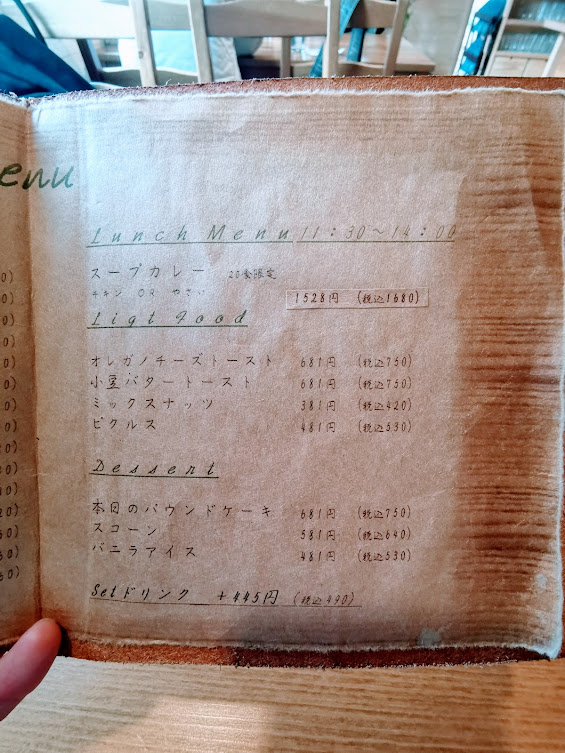 enu
Lunch Menu 11:30～14:00
スープカレー 20食限定
チキン OR やさい 1528円 (税込1680)
Ligt Food
オレガノチーズトースト 681円 (税込750)
小豆バタートースト 681円 (税込750)
ミックスナッツ 381円 (税込420)
ピクルス 481円 (税込530)
Dessert
本日のパウンドケーキ 681円 (税込750)
スコーン 581円 (税込640)
バニラアイス 481円 (税込530)
Setドリンク +445円 (税込490)